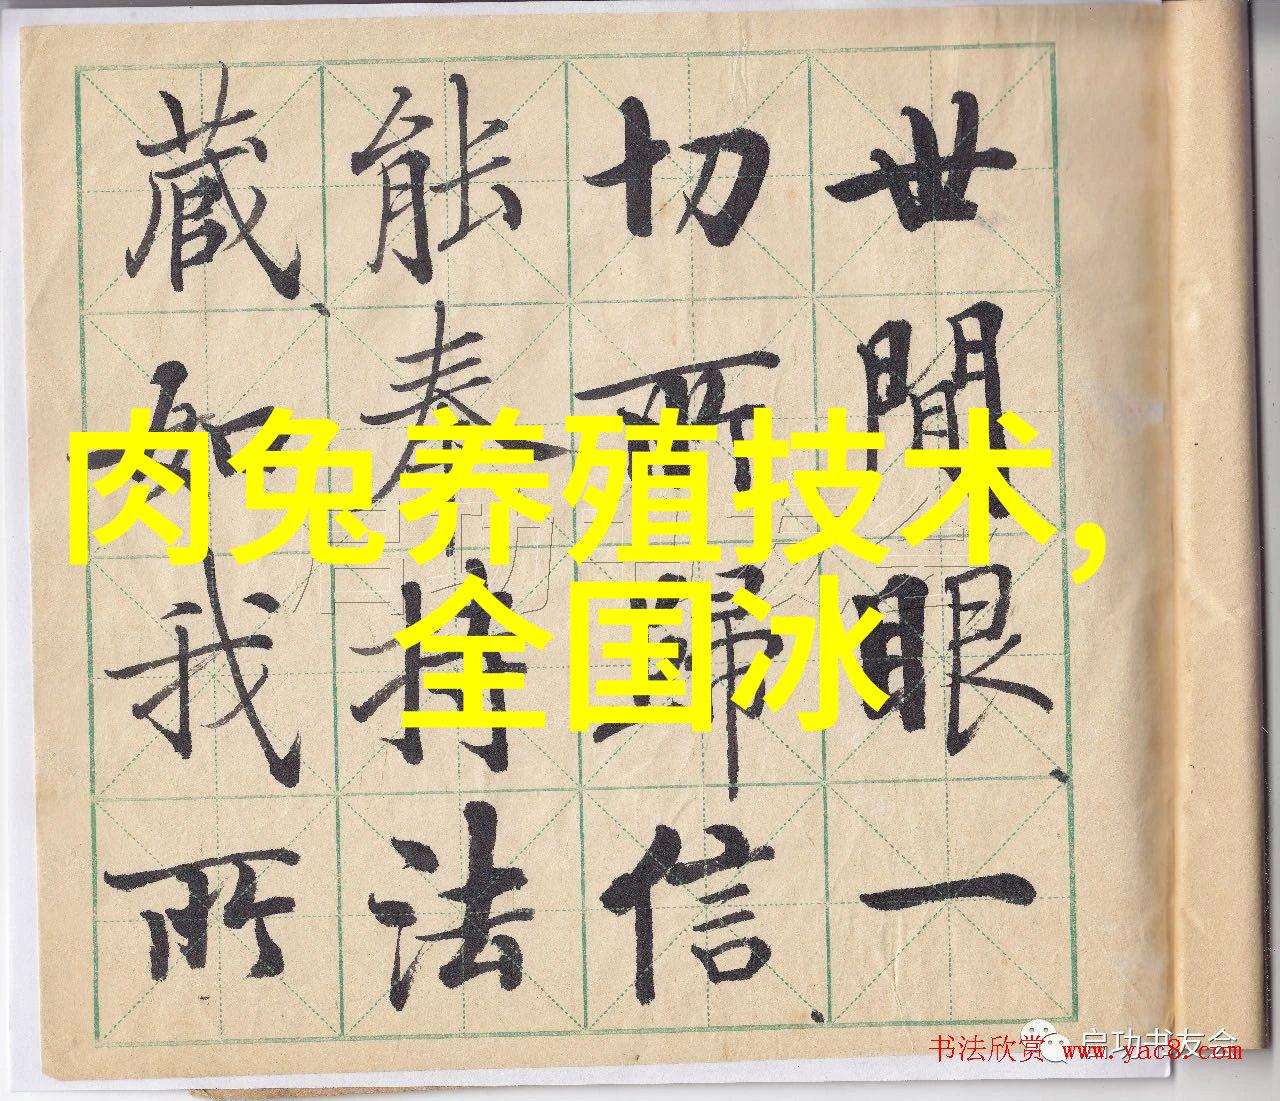 世間眼、一
切所歸信、
能奉持法
藏、如我所
肉兔养殖技术，
全国冰
启功书友会
书法欣赏 www.yac8.com
启功书友会